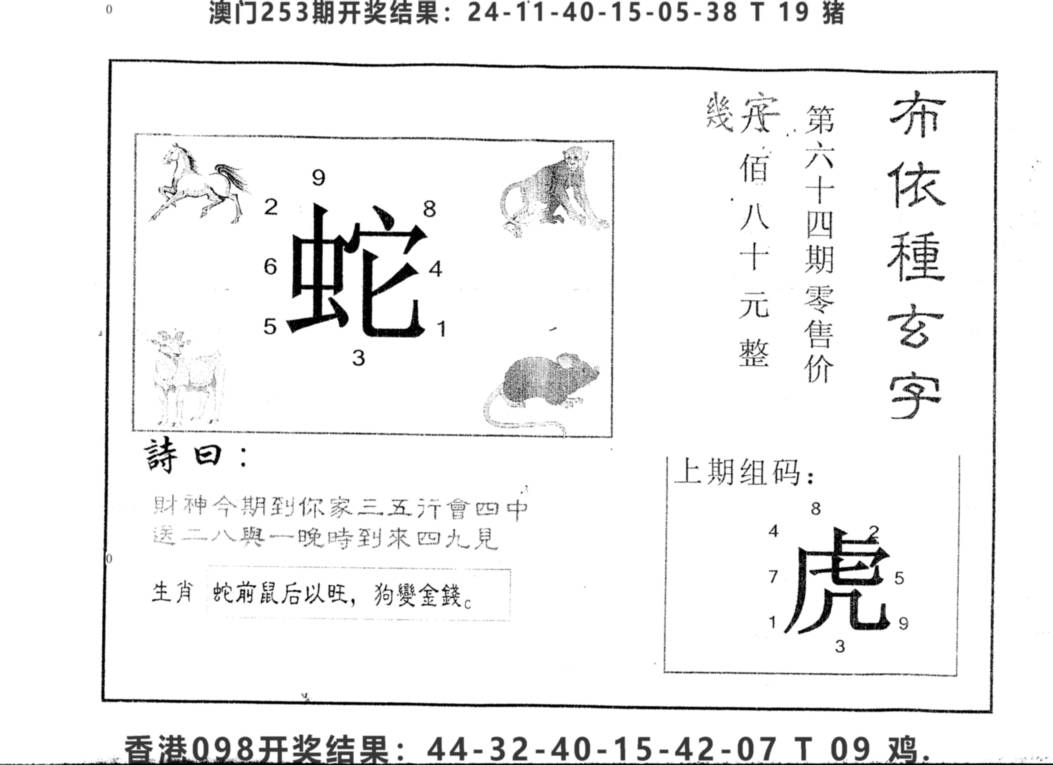 澳门253期开奖结果：24-11-40-15-05-38 T 19 猪
布依種玄字
第六十四期零售价
佰八十元整
幾字
9
2
8
蛇
6
4
5
1
3
詩曰：
財神今期到你家三五行會四中
送二八與一晚時到來四九見
生肖 蛇前鼠后以旺，狗變金錢。
上期组码：
8
4
2
虎
7
5
1
9
3
香港098开奖结果：44-32-40-15-42-07 T 09 鸡.